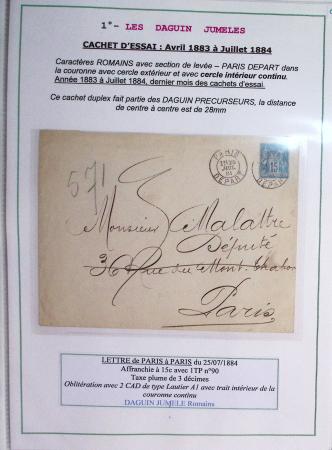 1°- LES DAGUIN JUMELES
CACHET D'ESSAI : Avril 1883 à Juillet 1884
Caractères ROMAINS avec section de levée – PARIS DEPART dans
la couronne avec cercle extérieur et avec cercle intérieur continu.
Année 1883 à Juillet 1884, dernier mois des cachets d'essai
Ce cachet duplex fait partie des DAGUIN PRECURSEURS, la distance
de centre à centre est de 28mm
571
PARIS
JUIL
84
DEPART
15
Monsieur Malattre
Député
36 Rue du Mont. Thabor
Paris
LETTRE de PARIS à PARIS du 25/07/1884
Affranchie à 15c avec 1TP n°90
Taxe plume de 3 décimes
Oblitération avec 2 CAD de type Lautier A1 avec trait intérieur de la
couronne continu
DAGUIN JUMELE Romains